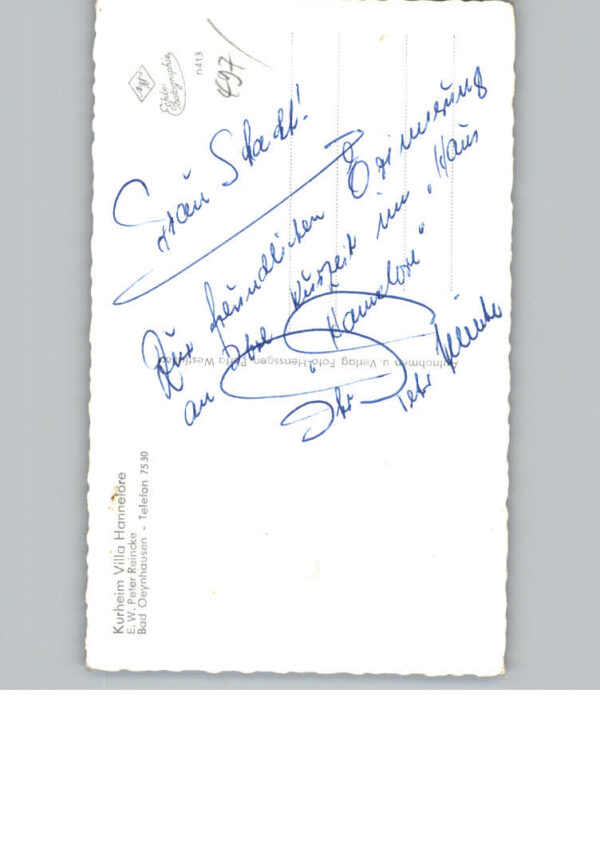 Agfa
Echte
Photographie
n413
497/
Frau Schacht!
Zur freundlichen Erinnerung
an Ihre Kurzeit im "Haus
Hannelore"
Ihr Peter Reincke
Aufnahmen u. Verlag Foto-Henssgen Porta Westfalica
Kurheim Villa Hannelore
E. W. Peter Reincke
Bad Oeynhausen - Telefon 7530